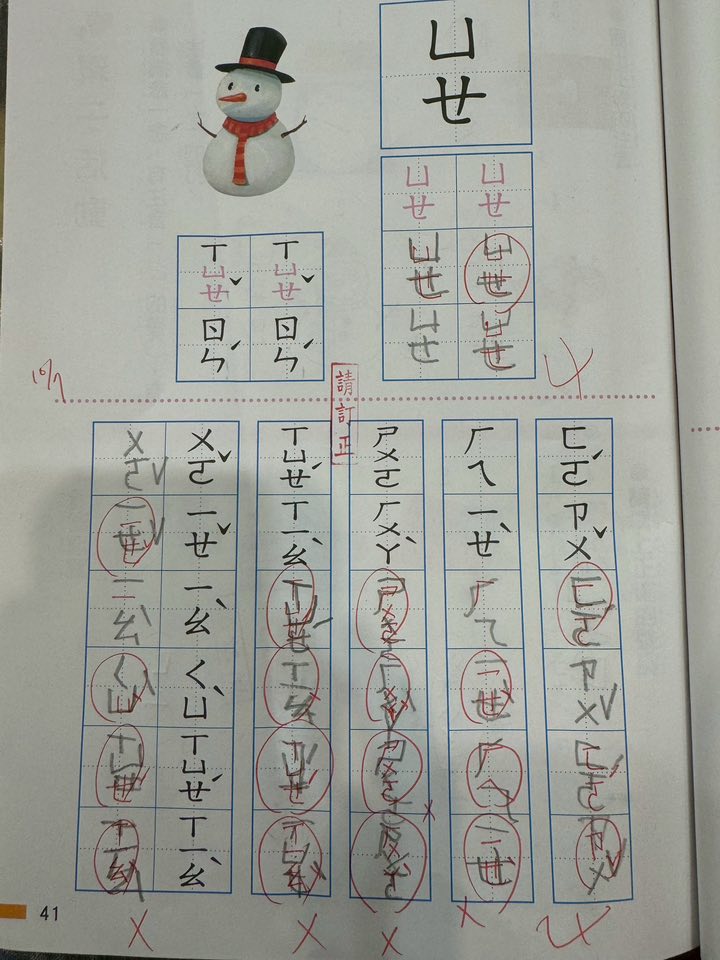 ㄩㄝ
ㄩㄝ ㄩㄝ
ㄩㄝ ㄩㄝ
ㄩㄝ ㄩㄝ
ㄒㄩㄝˇ ㄖㄣˊ
ㄒㄩㄝˇ ㄖㄣˊ
10/7
請訂正
ㄈㄛˊ ㄗㄨˇ ㄈㄛˊ ㄗㄨˇ ㄈㄛˊ ㄗㄨˇ
ㄏㄟ ㄧㄝˋ ㄏㄟ ㄧㄝˋ ㄏㄟ ㄧㄝˋ
ㄕㄨㄛ ㄏㄨㄚˋ ㄕㄨㄛ ㄏㄨㄚˋ ㄕㄨㄛ
ㄒㄩㄝˊ ㄒㄧㄠˋ ㄒㄩㄝˊ ㄒㄧㄠˋ ㄒㄩㄝˊ ㄒㄧㄠˋ
ㄨㄛˇ ㄧㄝˇ ㄧㄠˋ ㄑㄩˋ ㄒㄩㄝˊ ㄒㄧㄠˋ
ㄨㄛˇ ㄧㄝˇ ㄧㄠˋ ㄑㄩˋ ㄒㄩㄝˊ ㄒㄧㄠˋ
41